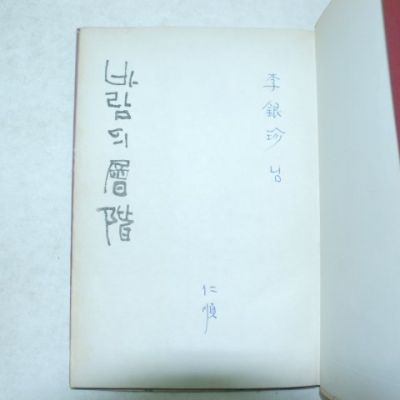 바람의 層階
李銀珍 님
仁順